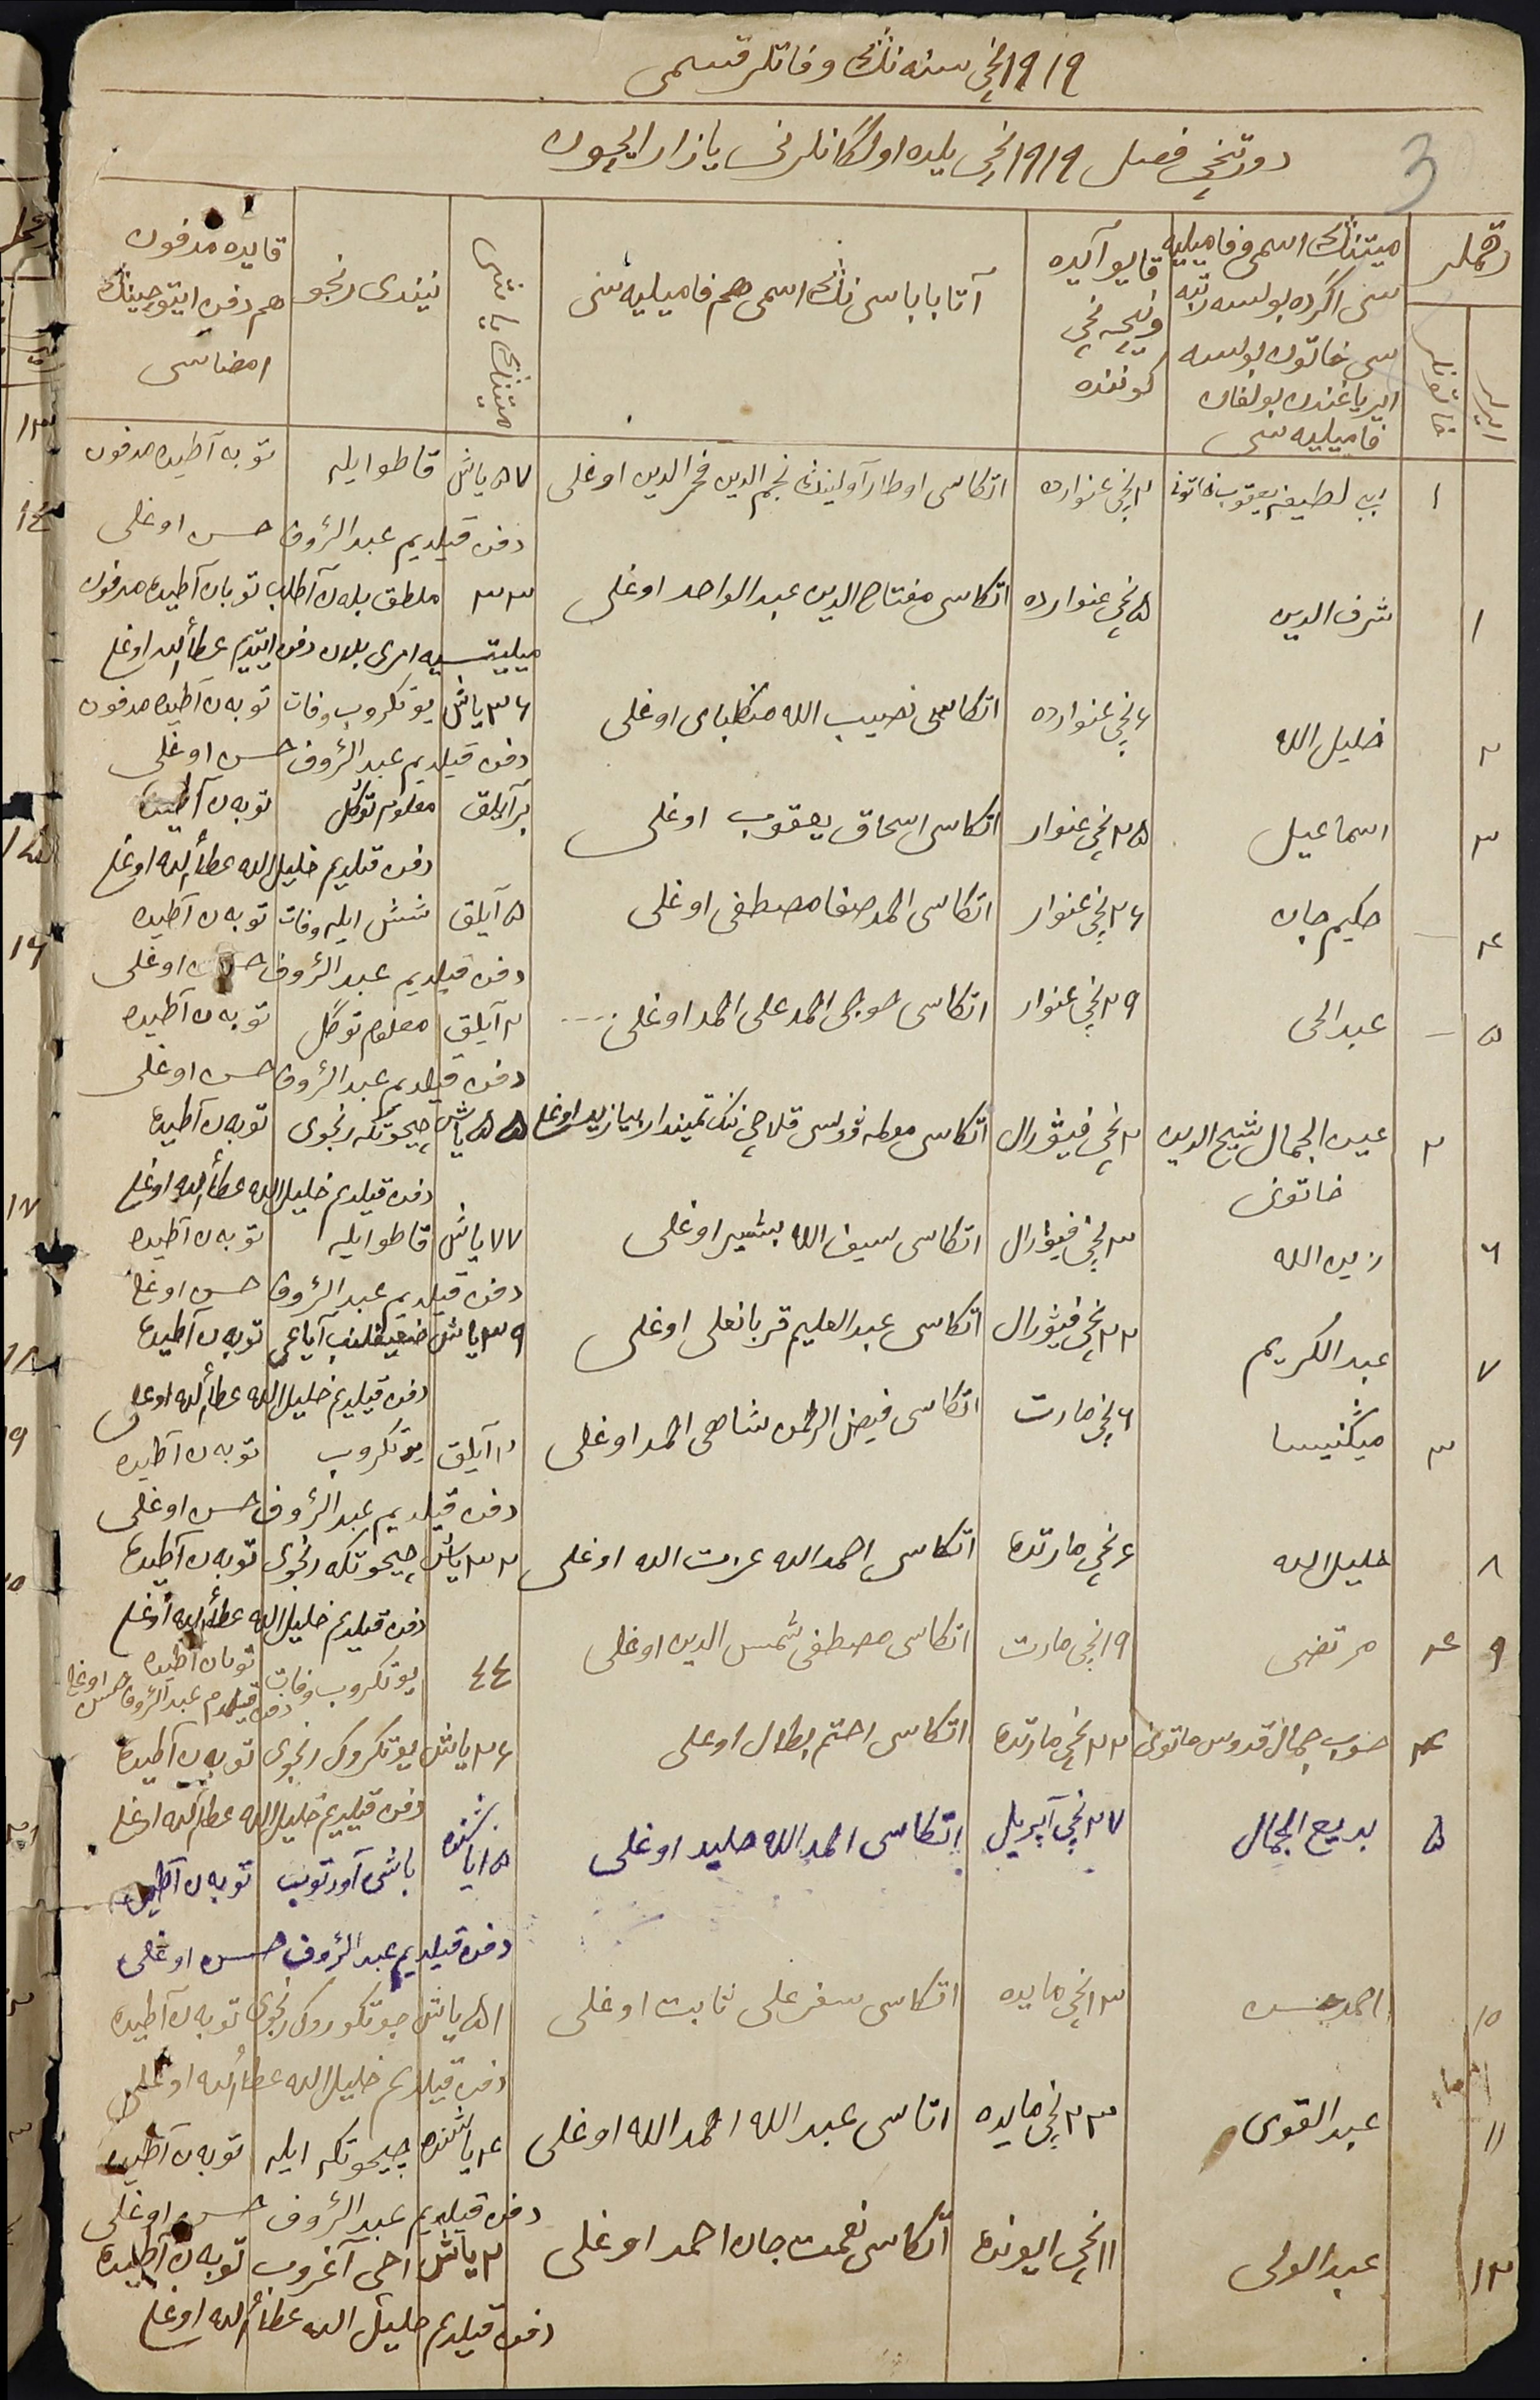 ١٩١٩نچی سنه‌نڭ وفاتلر قسمی
دورتنچی فصل ١٩١٩نچی یلده اولگانلرنی یازار ایچون
3
رقملر
ایرلر
خاتونلر
میتنڭ اسمی و فامیلیه
سی اگرده بولسه رتبه
سی خاتون بولسه
ایر یاغندن بولغان
فامیلیه سی
قایو آیده
و نیچه نچی
کوننده
آتا باباسی نڭ اسمی هم فامیلیه سی
میتنڭ یاشی
نیندی رنجو
قایده مدفون
هم دفن ایتوچینڭ
امضاسی
١ بی بی لطیفه یعقوب خاتونی ٢نچی غنوارده اتکاسی اوطار آولینڭ نجم الدین فخرالدین اوغلی ٥٧ یاش قاطو ایله توبه آطیده مدفون
دفن قیلدیم عبدالرؤف حسن اوغلی
١ شرف الدین ٥نچی غنوارده اتکاسی مفتاح الدین عبدالواحد اوغلی ٣٣ ملطق بله‌ن آطلب توبان آطیده مدفون
میلیتسیه امری بلان دفن ایتدیم عطأالله اوغلی
٢ خلیل الله ٦نچی غنوارده اتکاسی نصیب الله منکلبای اوغلی ٣٦ یاش یوتکروب وفات توبه‌ن آطیده مدفون
دفن قیلدیم عبدالرؤف حسن اوغلی
٣ اسماعیل ٢٥نچی غنوار اتکاسی اسحاق یعقوب اوغلی بر آیلق معلوم توگل توبه‌ن آطیده
دفن قیلدیم خلیل الله عطأالله اوغلی
٤ حکیم جان ٢٦نچی غنوار اتکاسی احمدصفا مصطفی اوغلی ٥ آیلق شش ایله وفات توبه‌ن آطیده
دفن قیلدیم عبدالرؤف حسن اوغلی
٥ عبدالحی ٢٩نچی غنوار اتکاسی خوجی احمد علی احمد اوغلی ٢ آیلق معلوم توگل توبه‌ن آطیده
دفن قیلدیم عبدالرؤف حسن اوغلی
٢ عین الجمال شیخ الدین ٢نچی فیؤرال اتکاسی بیازید اوغلی ٥٥ یاش چیحوتکه رنجوی توبه‌ن آطیده
خاتونی
دفن قیلدیم خلیل الله عطأالله اوغلی
٦ زین الله ٣نچی فیؤرال اتکاسی سیف الله بشیر اوغلی ٧٧ یاش قاطو ایله توبه‌ن آطیده
دفن قیلدیم عبدالرؤف حسن اوغلی
٧ عبدالکریم ٢٢نچی فیؤرال اتکاسی عبدالعلیم قربانعلی اوغلی ٣٩ یاش آیاغی توبه‌ن آطیده
دفن قیلدیم خلیل الله عطأالله اوغلی
٣ میڭنیسا ٦نچی مارت اتکاسی فیض الرحمن شاهی احمد اوغلی ٢ آیلق یوتکروب توبه‌ن آطیده
دفن قیلدیم عبدالرؤف حسن اوغلی
٨ خلیل الله ٦نچی مارتده اتکاسی احمدالله عزت الله اوغلی ٣٢ یاش چیحوتکه رنجوی توبه‌ن آطیده
دفن قیلدیم خلیل الله عطأالله اوغلی
٩ مرتضی ١٩نچی مارت اتکاسی مصطفی شمس الدین اوغلی ٤٤ یوتکروب وفات توبان آطیده
دفن قیلدم عبدالرؤف حسن اوغلی
٤ حوب جمال قدوس خاتونی ٢٢نچی مارتده اتکاسی اختم بطال اوغلی ٣٦ یاش یوتکروک رنجوی توبه‌ن آطیده
دفن قیلدیم خلیل الله عطأالله اوغلی
٥ بدیع الجمال ٢٧نچی آپریل اتکاسی احمدالله خلید اوغلی ١٥ یاشنده باشی آورتوب توبه‌ن آطیده
دفن قیلدیم عبدالرؤف حسن اوغلی
١٠ احمدحسن ١٣نچی مایده اتکاسی سفرعلی ثابت اوغلی ٥١ یاش رنجوی توبه‌ن آطیده
دفن قیلدیم خلیل الله عطأالله اوغلی
١١ عبدالقوی ٢٣نچی مایده اتاسی عبدالله احمدالله اوغلی ٤ یاشنده چیحوتکه ایله توبه‌ن آطیده
دفن قیلدیم عبدالرؤف حسن اوغلی
١٢ عبدالولی ١١نچی ایونده اتکاسی نعمت جان احمد اوغلی ٢ یاش اچی آغروب توبه‌ن آطیده
دفن قیلدیم خلیل الله عطأالله اوغلی